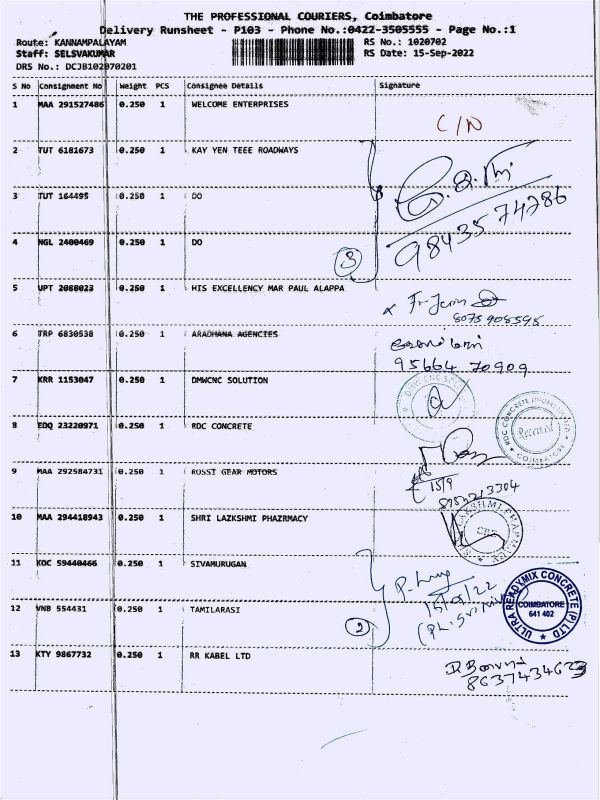 THE PROFESSIONAL COURIERS, Coimbatore
Delivery Runsheet - P103 - Phone No.:0422-3505555 - Page No.:1
Route: KANNAMPALAYAM RS No.: 1020702
Staff: SELSVAKUMAR RS Date: 15-Sep-2022
DRS No.: DCJB102070201
S No Consignment No Weight PCS Consignee Details Signature
1 MAA 291527486 0.250 1 WELCOME ENTERPRISES
C/N
2 TUT 6181673 0.250 1 KAY YEN TEEE ROADWAYS
3 TUT 164495 0.250 1 DO
98435 74786
4 NGL 2400469 0.250 1 DO
3
5 UPT 2088023 0.250 1 HIS EXCELLENCY MAR PAUL ALAPPA
8075908595
6 TRP 6830538 0.250 1 ARADHANA AGENCIES
95664 70909
7 KRR 1153047 0.250 1 DMWCNC SOLUTION
8 EDQ 23220971 0.250 1 RDC CONCRETE
RDC CONCRETE
Received
COIMBATORE
9 MAA 292584731 0.250 1 ROSSI GEAR MOTORS
15/9
10 MAA 294418943 0.250 1 SHRI LAZKSHMI PHAZRMACY
11 KOC 59440466 0.250 1 SIVAMURUGAN
15/9/22
12 VNB 554431 0.250 1 TAMILARASI
2
ULTRA READYMIX CONCRETE (P) LTD
COIMBATORE
641 402
13 KTY 9867732 0.250 1 RR KABEL LTD